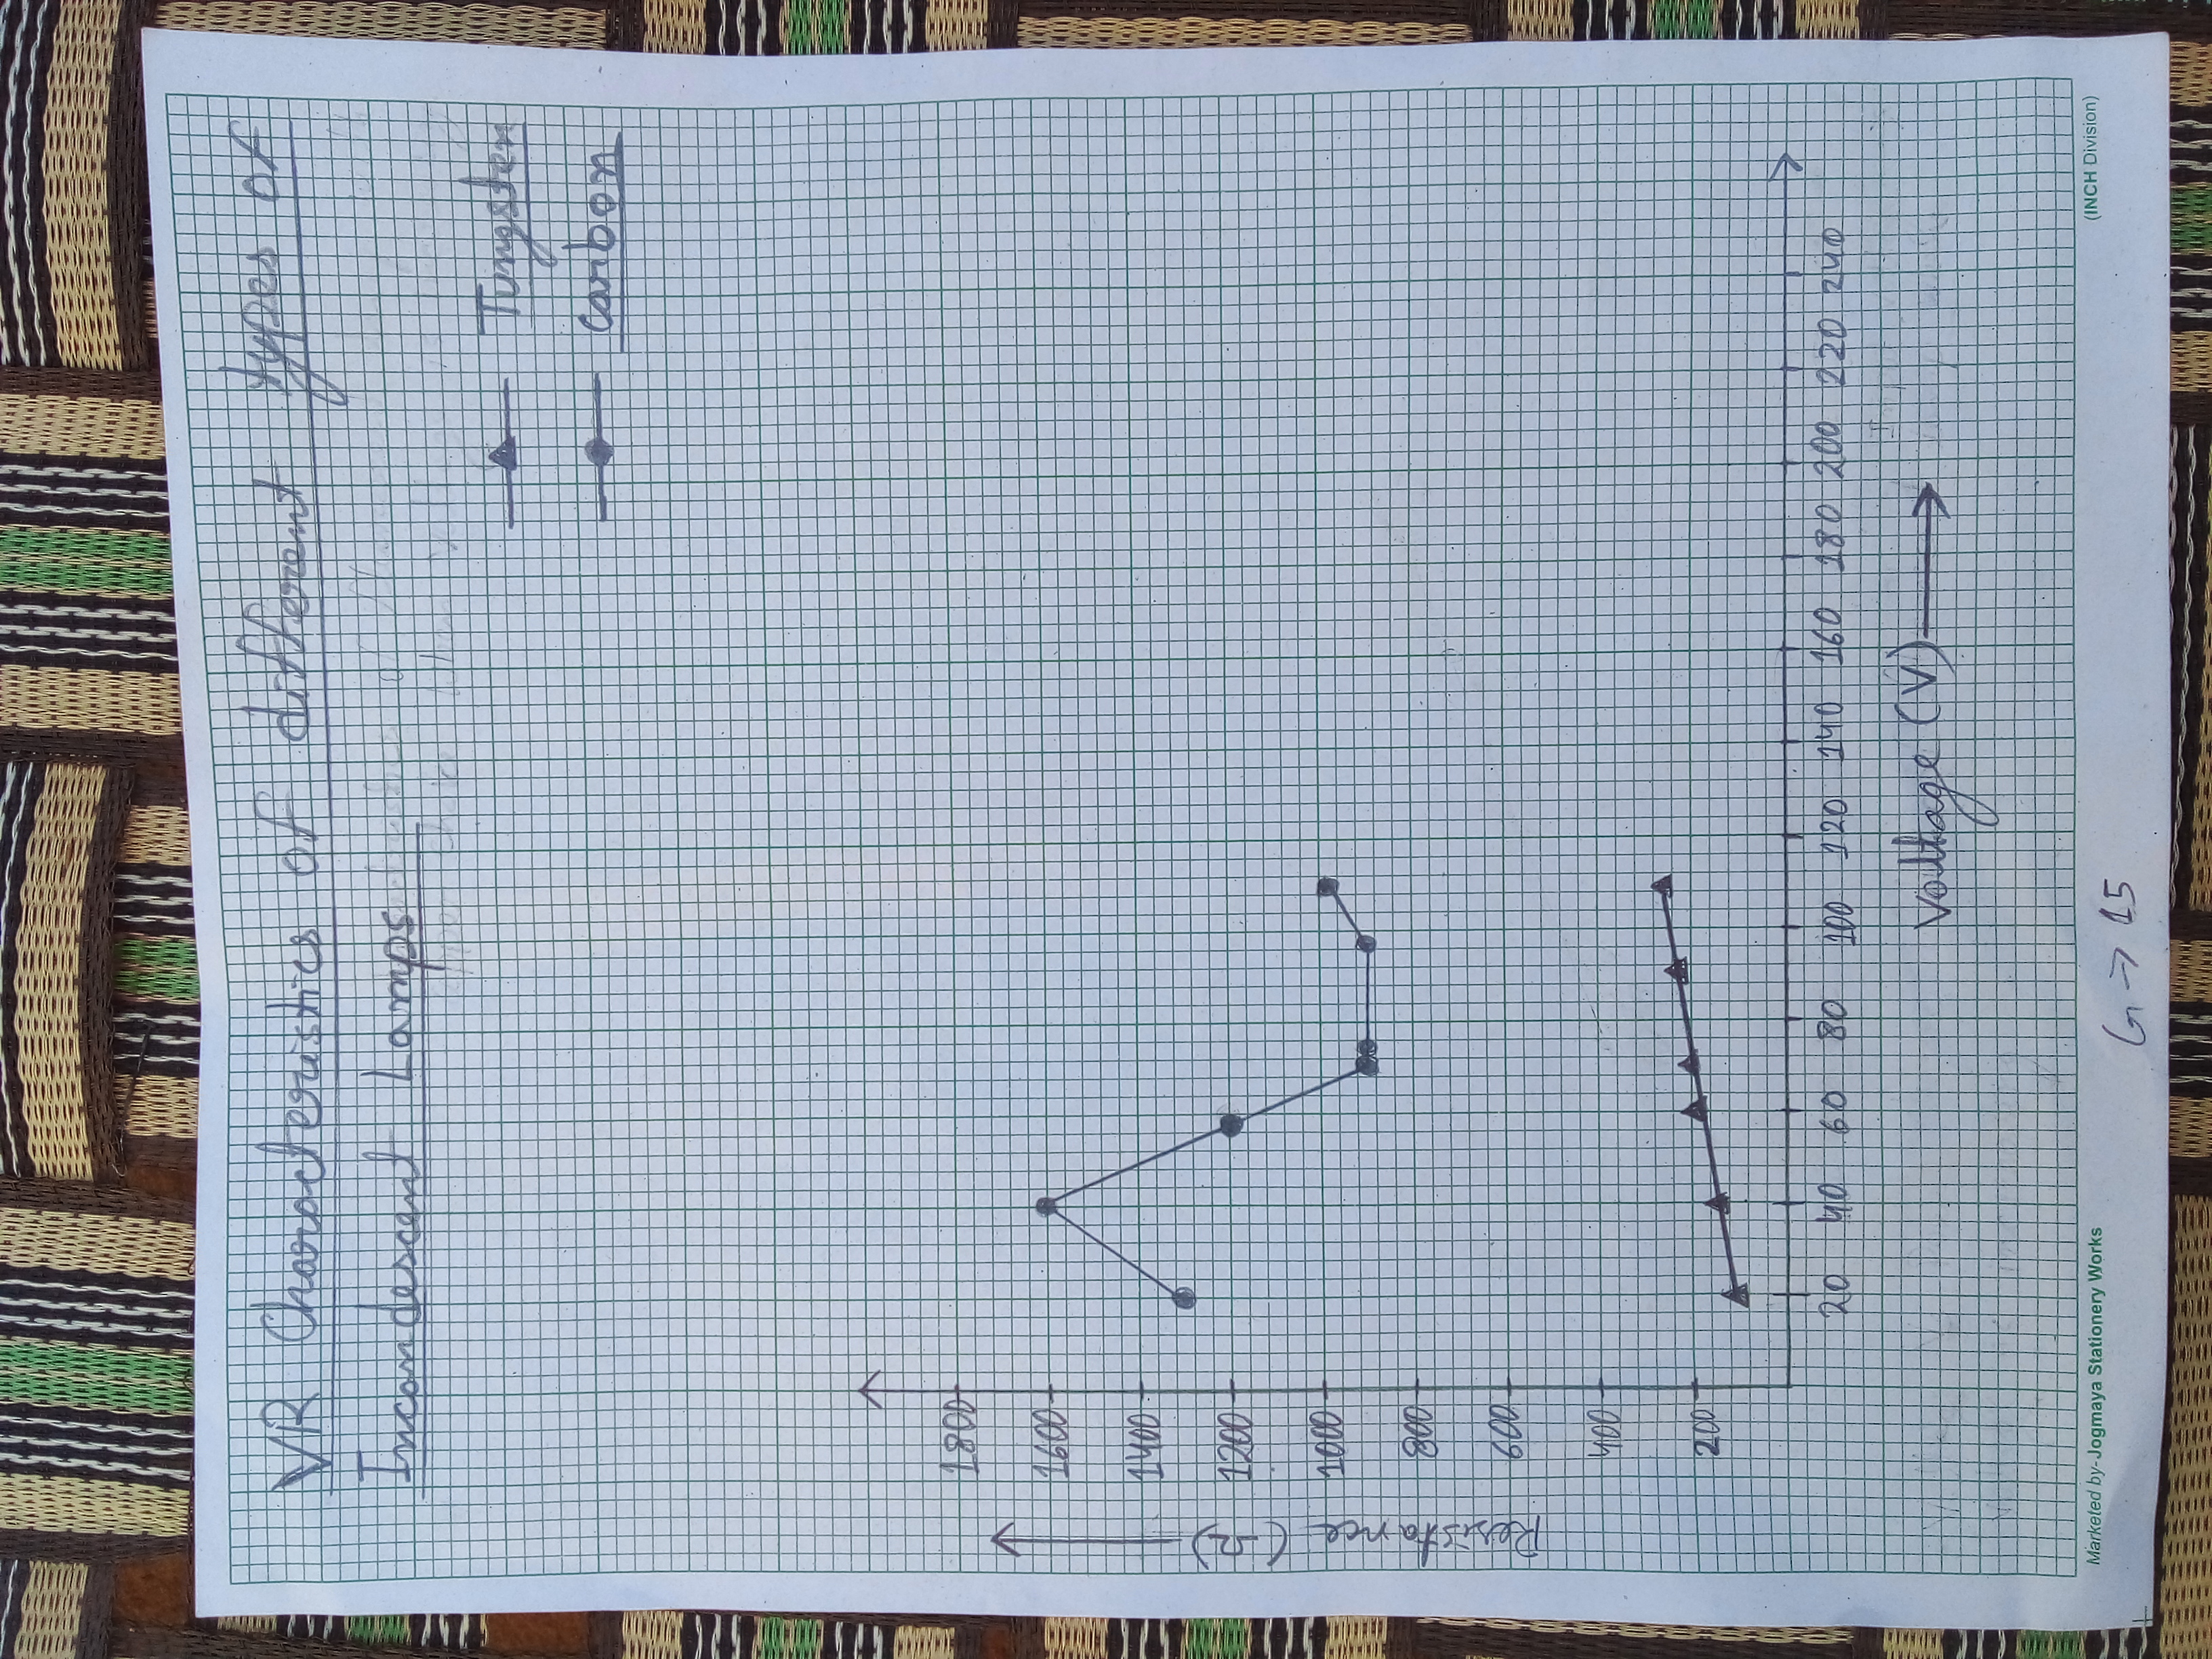 VR Characteristics of different types of
Incandescent Lamps
Tungsten
Carbon
1800
1600
1400
1200
1000
800
600
400
200
Resistance (Ω)
20 40 60 80 100 120 140 160 180 200 220 240
Voltage (V)
Marketed by-Jogmaya Stationery Works
(INCH Division)
G → 15